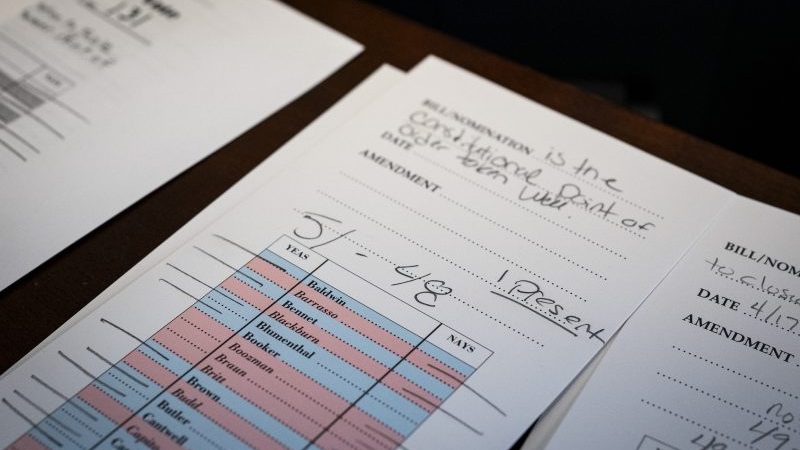 131
NAYS
BILL/NOMINATION is the
Constitutional Point of
Order taken well.
DATE
AMENDMENT
51 - 48
1 Present
YEAS
NAYS
Baldwin
Barrasso
Bennet
Blackburn
Blumenthal
Booker
Boozman
Braun
Britt
Brown
Budd
Butler
Cantwell
BILL/NOM
to
DATE 4/17
AMENDMENT
no
49